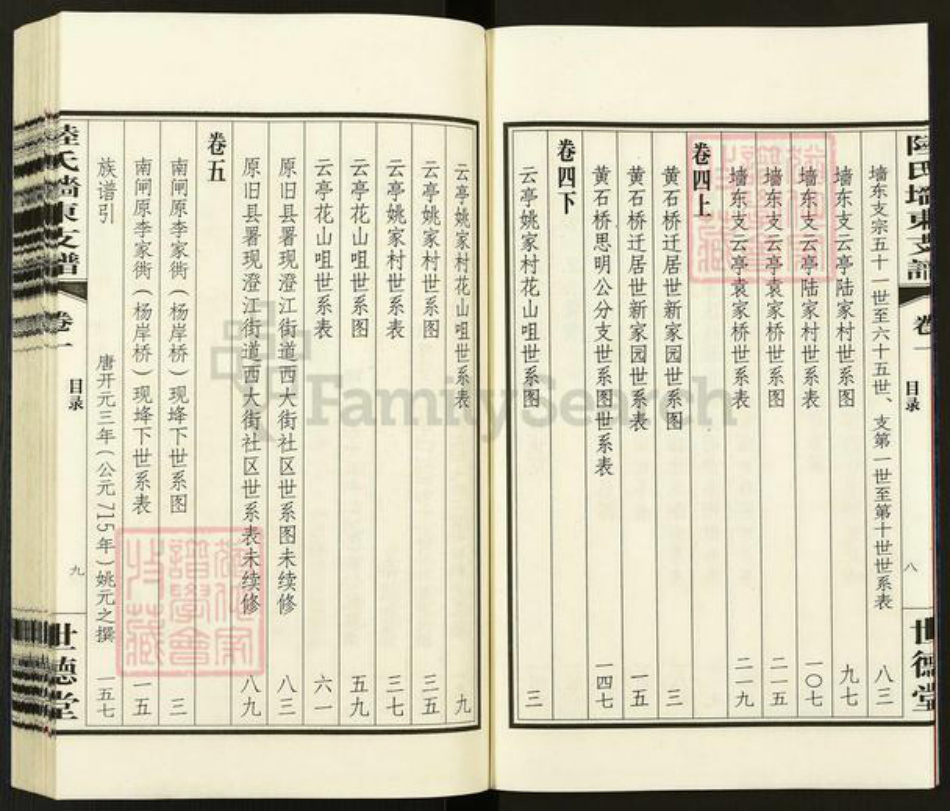 陆氏墙東支譜
卷一
目录
八
世德堂
墙东支宗五十一世至六十五世、支第一世至第十世世系表 八三
墙东支云亭陆家村世系图 九七
墙东支云亭陆家村世系表 一〇七
墙东支云亭袁家桥世系图 二一五
墙东支云亭袁家桥世系表 二一九
卷四上
黄石桥迁居世新家园世系图 三
黄石桥迁居世新家园世系表 一五
黄石桥思明公分支世系图世系表 一四七
卷四下
云亭姚家村花山咀世系图 三
云亭姚家村花山咀世系表 九
云亭姚家村世系图 三五
云亭姚家村世系表 三七
云亭花山咀世系图 五九
云亭花山咀世系表 六一
原旧县署现澄江街道西大街社区世系图未续修 八三
原旧县署现澄江街道西大街社区世系表未续修 八九
卷五
南闸原李家衖（杨岸桥）现埄下世系图 三
南闸原李家衖（杨岸桥）现埄下世系表 一五
族谱引 唐开元三年（公元715年）姚元之撰 一五七
陸氏墙東支譜
卷一
目录
九
世德堂
FamilySearch